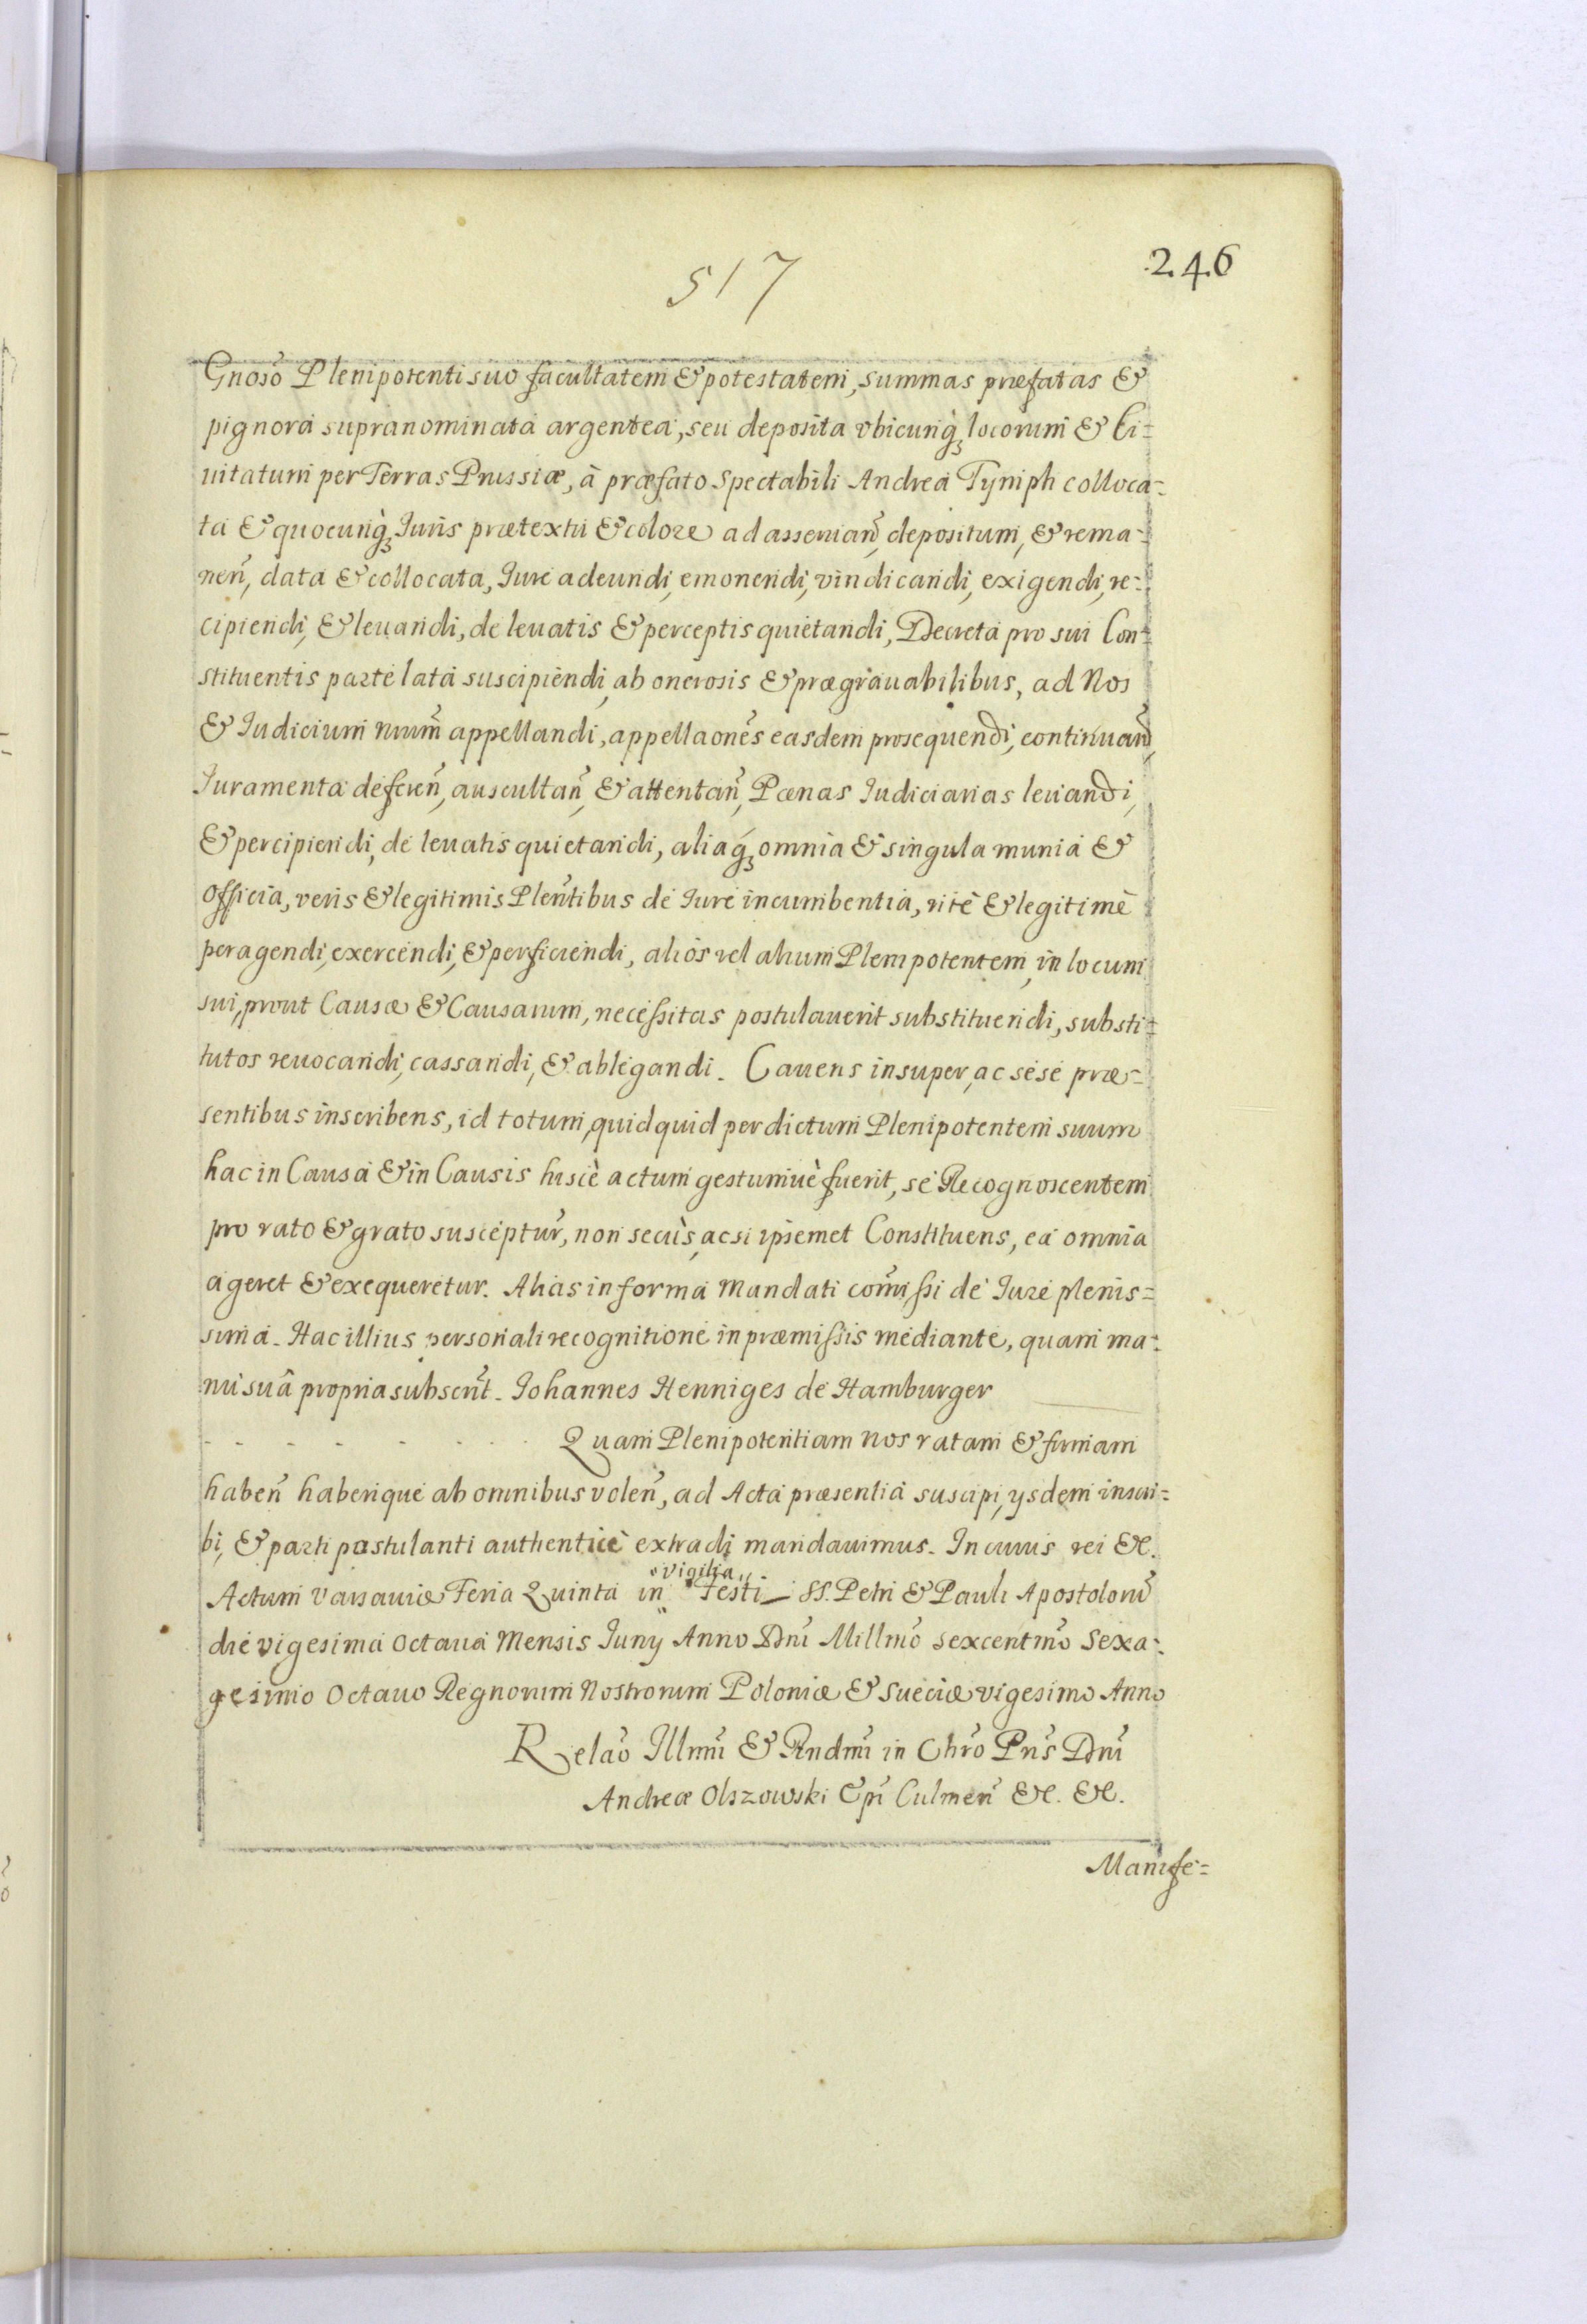 517
246
Gnosõ Plenipotenti suo facultatem & potestatem, summas præfatas &
pignora supranominata argentea, seu deposita vbicunq́ꝫ locorum & Ci=
uitatum per Terras Prussiæ, à præfato Spectabili Andrea Tymph colloca=
ta & quocunq́ꝫ Iuris prætextu & colore ad asseruañ, depositum, & rema=
neñ, data & collocata, Iure adeundi, emonendi, vindicandi, exigendi, re=
cipiendi, & leuandi, de leuatis & perceptis quietandi, Decreta pro sui Con=
stituentis parte lata suscipiendi, ab onerosis & prægrauabilibus, ad Nos
& Iudicium nrum̃ appellandi, appellaoñes easdem prosequendi, continuañd,
Iuramenta defereñ, auscultañ, & attentañ, Pœnas Iudiciarias leuandi,
& percipiendi, de leuatis quietandi, aliaq́ꝫ omnia & singula munia &
Officia, veris & legitimis Pleñtibus de Iure incumbentia, ritè & legitimè
peragendi, exercendi, & perficiendi, alios vel alium Plenipotentem, in locum
sui, prout Causæ & Causarum, necessitas postulauerit substituendi, substi=
tutos reuocandi, cassandi, & ablegandi. Cauens insuper, ac sese præ=
sentibus inscribens, id totum, quidquid per dictum Plenipotentem suum
hac in Causa & in Causis hiscè actum gestumuè fuerit, se Recognoscentem
pro rato & grato susceptur̃, non secùs, acsi ipsemet Constituens, ea omnia
ageret & exequeretur. Alias in forma Mandati com̃issi de Iure plenis=
sima. Hac illius personali recognitione in præmissis mediante, quam ma=
nu suâ propria subscrit̃. Iohannes Henniges de Hamburger
- - - - - - - - Quam Plenipotentiam nos ratam & firmam
habeñ haberique ab omnibus voleñ, ad Acta præsentia suscipi, ysdem inscri=
bi, & parti postulanti authenticè extradi mandauimus. In cuius rei &c.
Actum Varsauiæ Feria Quinta in "Vigilia" Festi SS. Petri & Pauli Apostolorũ
die vigesima Octaua Mensis Iunij Anno Dñi Millmõ sexcentmõ Sexa=
gesimo Octauo Regnorum Nostrorum Poloniæ & Sueciæ vigesimo Anno
Relaõ Illmĩ & Rndmĩ in Chrõ Pris̃ Dñi
Andreæ Olszowski Epĩ Culmeñ &c. &c.
Manife=